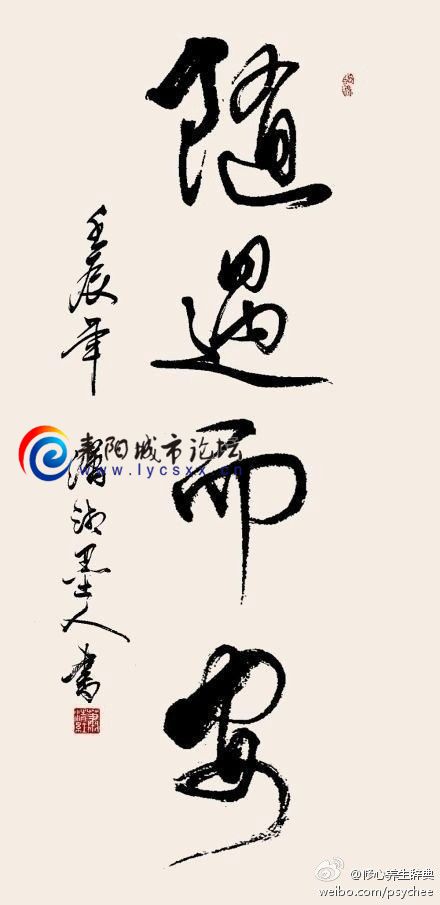 隨遇而安
壬辰年
墨人書
耒阳城市论坛
www.lycsxx.cn
@修心养生辞典
weibo.com/psychee